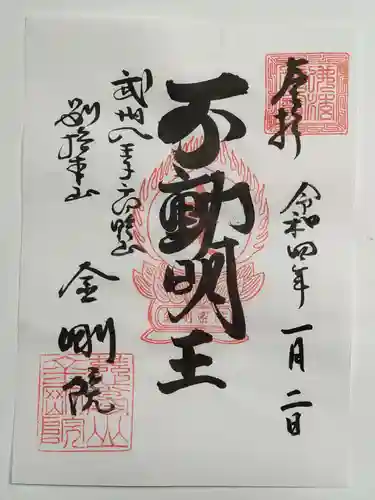 奉拝
令和四年一月二日
不動明王
武州八王子六明山
別格本山
金剛院